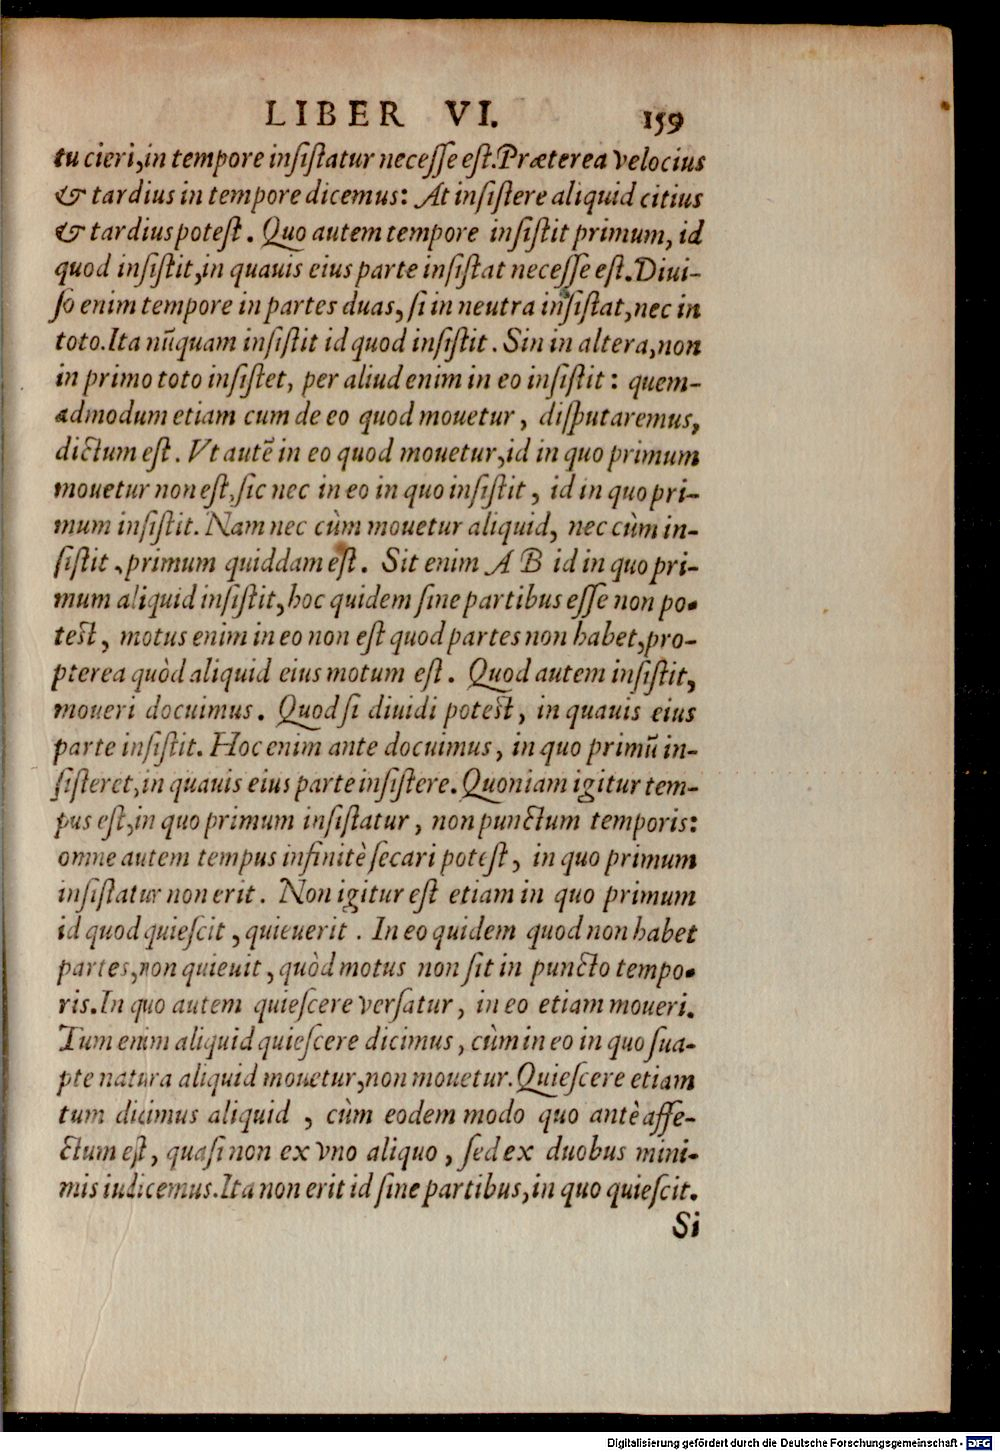 LIBER VI. 159
tu cieri, in tempore insistatur necesse est. Præterea velocius
& tardius in tempore dicemus: At insistere aliquid citius
& tardius potest. Quo autem tempore insistit primum, id
quod insistit, in quauis eius parte insistat necesse est. Diui-
so enim tempore in partes duas, si in neutra insistat, nec in
toto. Ita nūquam insistit id quod insistit. Sin in altera, non
in primo toto insistet, per aliud enim in eo insistit: quem-
admodum etiam cum de eo quod mouetur, disputaremus,
dictum est. Vt autē in eo quod mouetur, id in quo primum
mouetur non est, sic nec in eo in quo insistit, id in quo pri-
mum insistit. Nam nec cùm mouetur aliquid, nec cùm in-
sistit, primum quiddam est. Sit enim A B id in quo pri-
mum aliquid insistit, hoc quidem sine partibus esse non po-
test, motus enim in eo non est quod partes non habet, pro-
pterea quòd aliquid eius motum est. Quod autem insistit,
moueri docuimus. Quod si diuidi potest, in quauis eius
parte insistit. Hoc enim ante docuimus, in quo primū in-
sisteret, in quauis eius parte insistere. Quoniam igitur tem-
pus est, in quo primum insistatur, non punctum temporis:
omne autem tempus infinitè secari potest, in quo primum
insistatur non erit. Non igitur est etiam in quo primum
id quod quiescit, quieuerit. In eo quidem quod non habet
partes, non quieuit, quòd motus non sit in puncto tempo-
ris. In quo autem quiescere versatur, in eo etiam moueri.
Tum enim aliquid quiescere dicimus, cùm in eo in quo sua-
pte natura aliquid mouetur, non mouetur. Quiescere etiam
tum dicimus aliquid, cùm eodem modo quo antè affe-
ctum est, quasi non ex vno aliquo, sed ex duobus mini-
mis iudicemus. Ita non erit id sine partibus, in quo quiescit.
Si
Digitalisierung gefördert durch die Deutsche Forschungsgemeinschaft - DFG